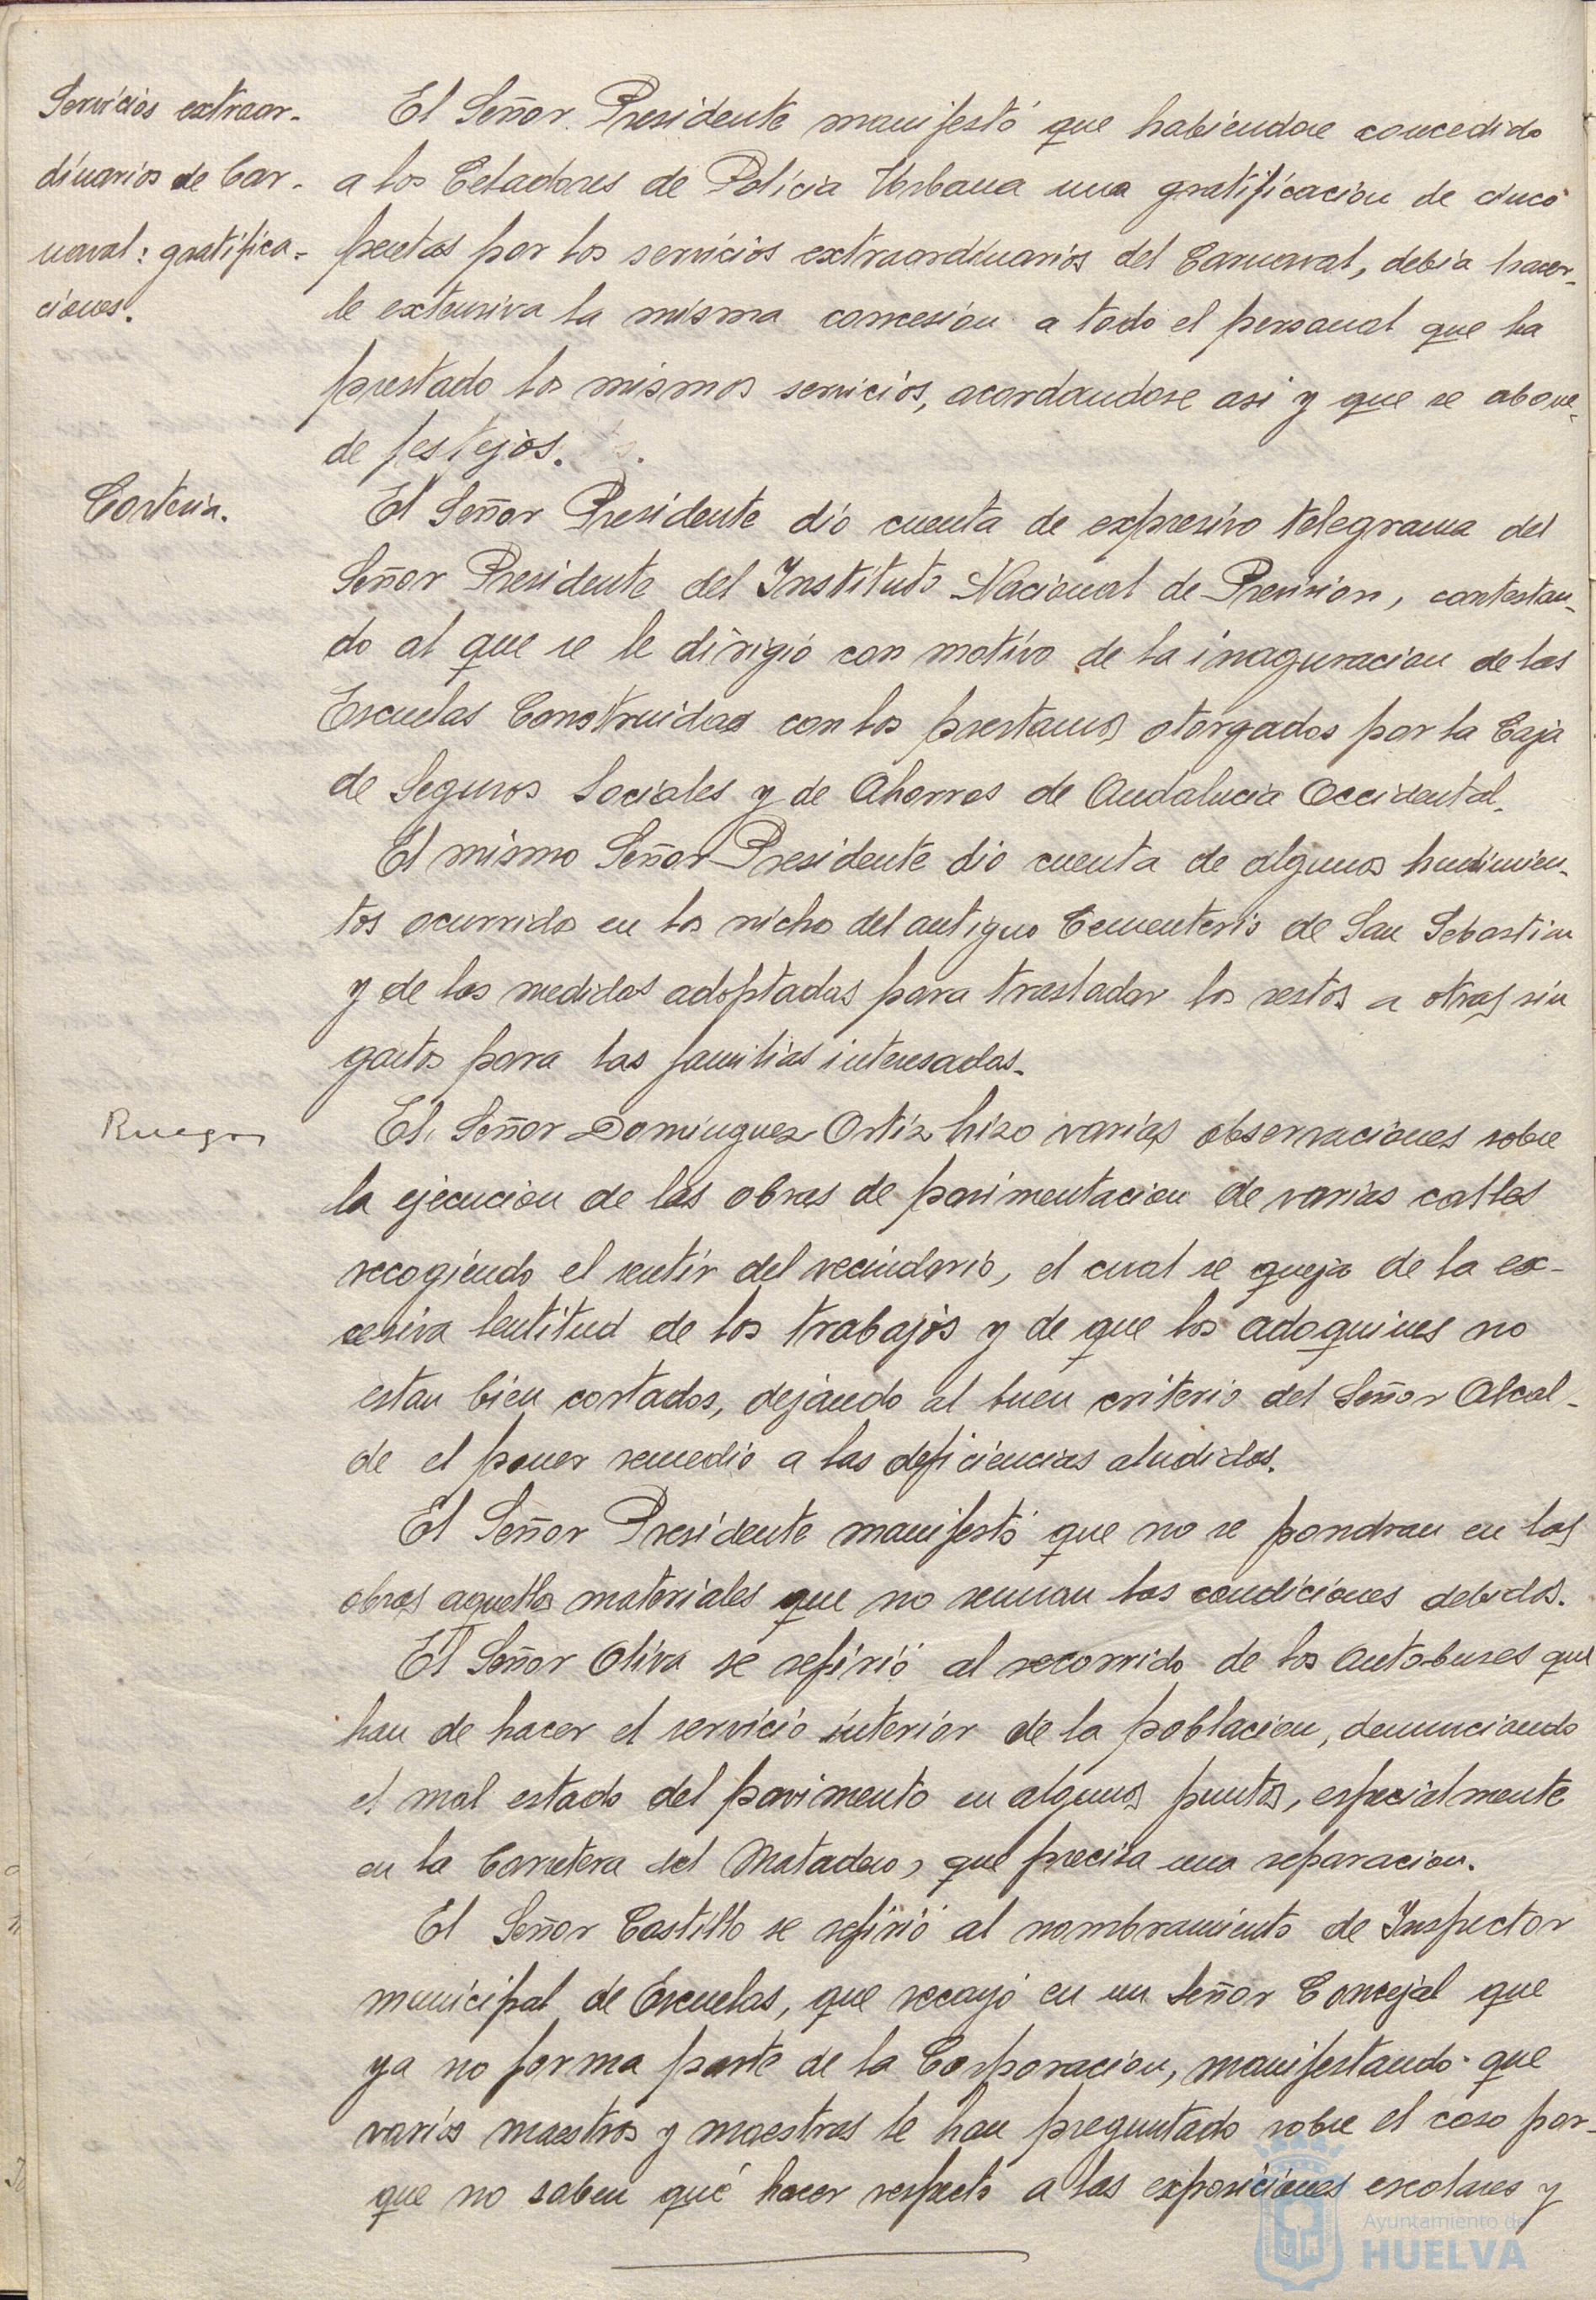 Servicios extraor-
dinarios de Car-
naval: gratifica-
ciones.
El Señor Presidente manifestó que habiendose concedido
a los Celadores de Policia Urbana una gratificacion de cinco
pesetas por los servicios extraordinarios del Carnaval, debia hacer-
le extensiva la misma concesion a todo el personal que ha
prestado los mismos servicios, acordandose asi y que se abone
de festejos.
Cortesia.
El Señor Presidente dio cuenta de expresivo telegrama del
Señor Presidente del Instituto Nacional de Prevision, contestan-
do al que se le dirigió con motivo de la inaguracion de las
Escuelas Construidas con los prestamos otorgados por la Caja
de Seguros Sociales y de Ahorros de Andalucia Occidental.
El mismo Señor Presidente dio cuenta de algunos hundimien-
tos ocurridos en los nichos del antiguo Cementerio de San Sebastian
y de las medidas adoptadas para trasladar los restos a otros sin
gastos para las familias interesadas.
Ruegos
El Señor Dominguez Ortiz hizo varias observaciones sobre
la ejecucion de las obras de pavimentacion de varias calles
recogiendo el sentir del vecindario, el cual se queja de la ex-
cesiva lentitud de los trabajos y de que los adoquines no
estan bien cortados, dejando al buen criterio del Señor Alcal-
de el poner remedio a las deficiencias aludidas.
El Señor Presidente manifestó que no se pondran en las
obras aquellos materiales que no reunan las condiciones debidas.
El Señor Oliva se refirió al recorrido de los Autobuses que
han de hacer el servicio interior de la poblacion, denunciando
el mal estado del pavimento en algunos puntos, especialmente
en la Carretera del Matadero, que precisa una reparacion.
El Señor Castillo se refirió al nombramiento de Inspector
municipal de Escuelas, que recayó en un Señor Concejal que
ya no forma parte de la Corporacion, manifestando que
varios maestros y maestras le han preguntado sobre el caso por-
que no saben qué hacer respecto a las exposiciones escolares y
Ayuntamiento de
HUELVA